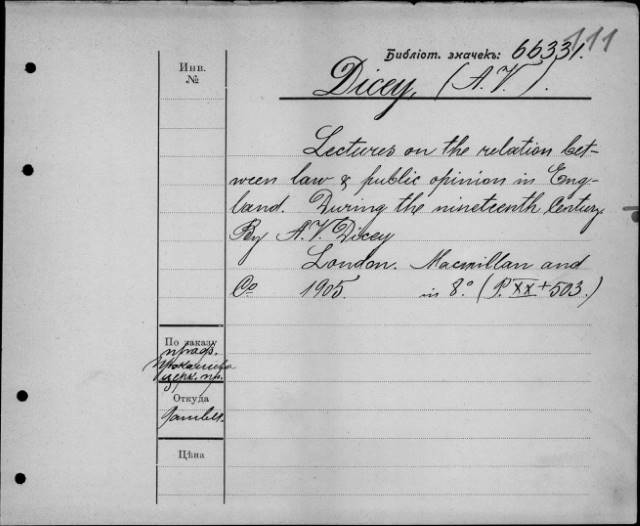 111
Библіот. значекъ: 66331.
Инв.
№
Dicey, (A.V.).
Lectures on the relation bet-
ween law & public opinion in Eng-
land. During the nineteenth Century.
By A.V. Dicey
London. Macmillan and
Co 1905. in 8.º (P. XX + 503.)
По заказу
проф.
церк. пр.
Откуда
Цѣна